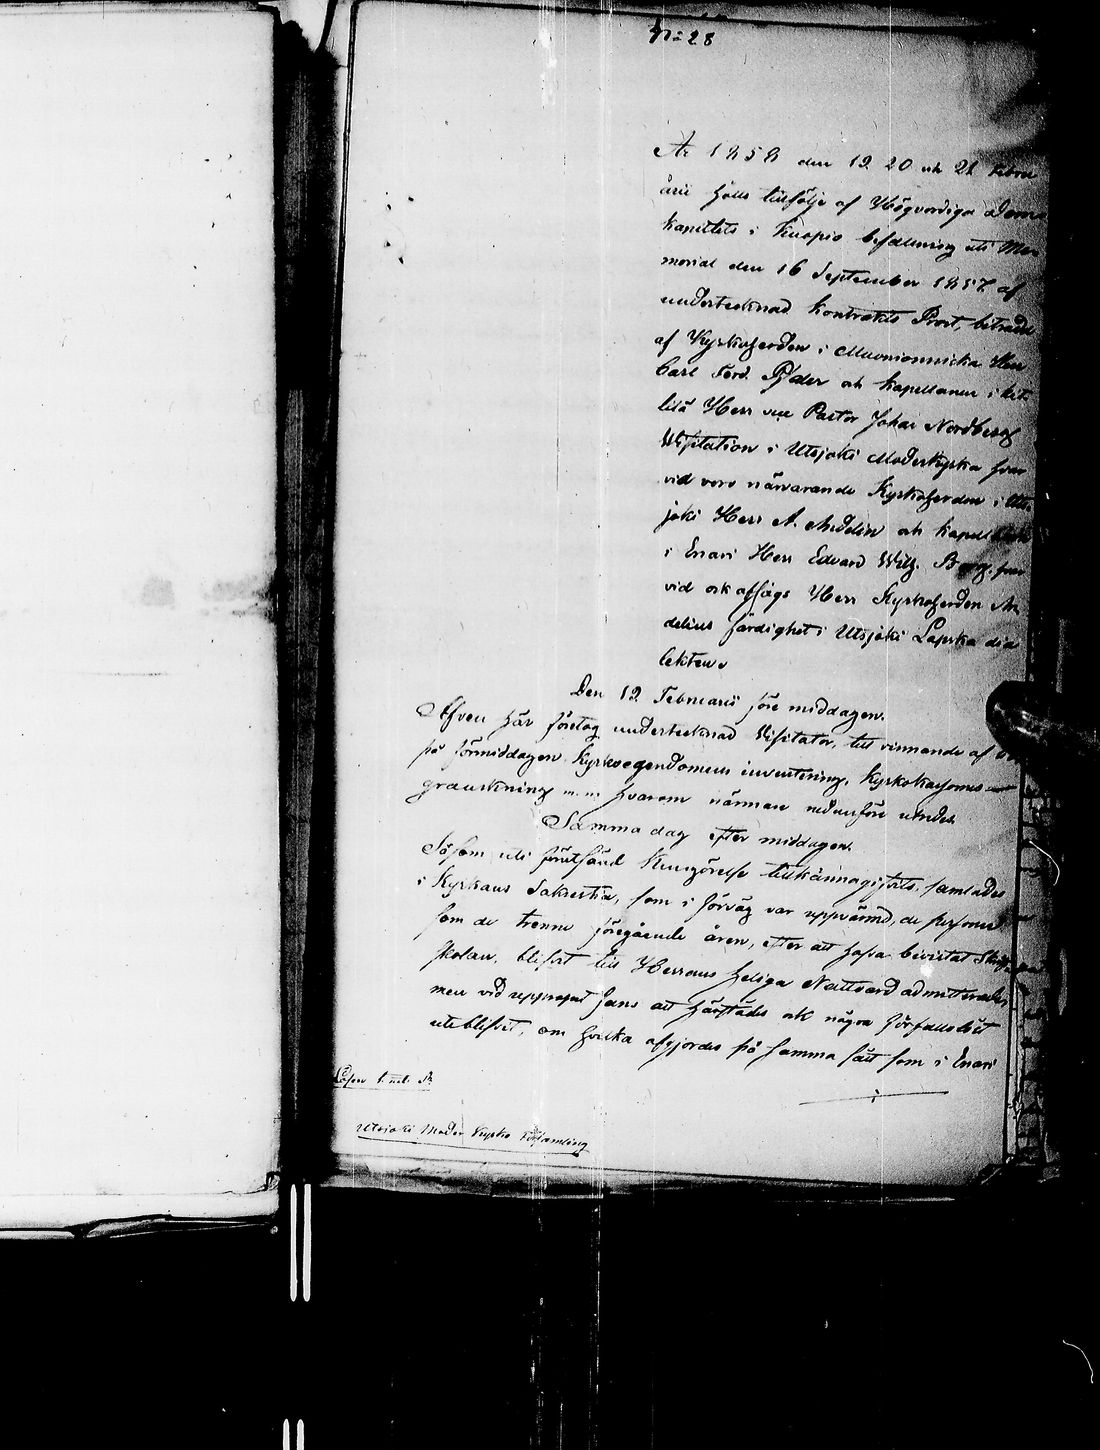 N:o 28
År 1858 den 19. 20 och 21 Febru
arii hölls tillfölje af Högvördiga Dom
kapitlets i Kuopio befallning uti Me
morial den 16 September 1857 af
undertecknad Kontrakts Prost, biträdd
af Kyrkoherden i Muonionniska Herr
Carl Ferd. och Kapellanen i Kit
tilä Herr vice Pastor Johan Nordberg
Visitation i Utsjoki Moderkyrka hvar
vid voro närvarande Kyrkoherden i Uts
joki Herr A. Andelin och Kapellanen
i Enari Herr Edvard Wilh. Borg, hvar
vid ock aflägs Herr Kyrkoherden An
delins färdighet i Utsjoki Lapska dia
lekten.
Den 19 Februarii före middagen.
Äfven här företog undertecknad Visitator, till vinnande af
på förmiddagen Kyrkoegendomens inventering, Kyrkokassornes
granskning m. m. hvarom närmare nedanföre
Samma dag efter middagen.
Såsom uti förutsänd Kungörelse tillkännagifvits, samlades
i Kyrkans Sakristia, som i förväg var uppvärmd, de personer
som de trenne föregående åren, efter att hafva bevistat Skrift
skolan, blifvit till Herrans Heliga Nattvard admitterade,
men vid uppropet fans att härstädes ock några förfallolöst
uteblifvit, om hvilka afgjordes på samma sätt som i Enari
Utsjoki Moder Kyrko Församling